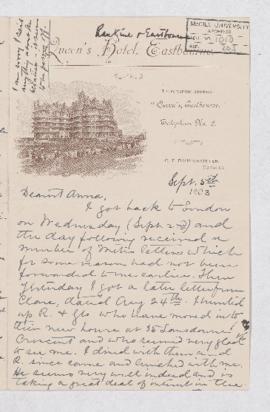 McGILL UNIVERSITY
ARCHIVES
Rankine & Eastbourne
Queen's Hotel, Eastbourne.
Telegraphic Address
"Queen's, Eastbourne."
Telephone No. 2.
Sept. 5th
1903
Dearest Anna,
I got back to London
on Wednesday (Sept. 2nd) and
the day following received a
number of letters which
for some reason had not been
forwarded to me earlier. Then
yesterday I got a later letter from
Clare, dated Aug 24th. I hunted
up R. & Glo who have moved into
their new house at 35 Lansdowne
Crescent and who seemed very glad
to see me. I dined with them and
R. since came and lunched with me.
He seems very well indeed and is
taking a great deal of interest in the